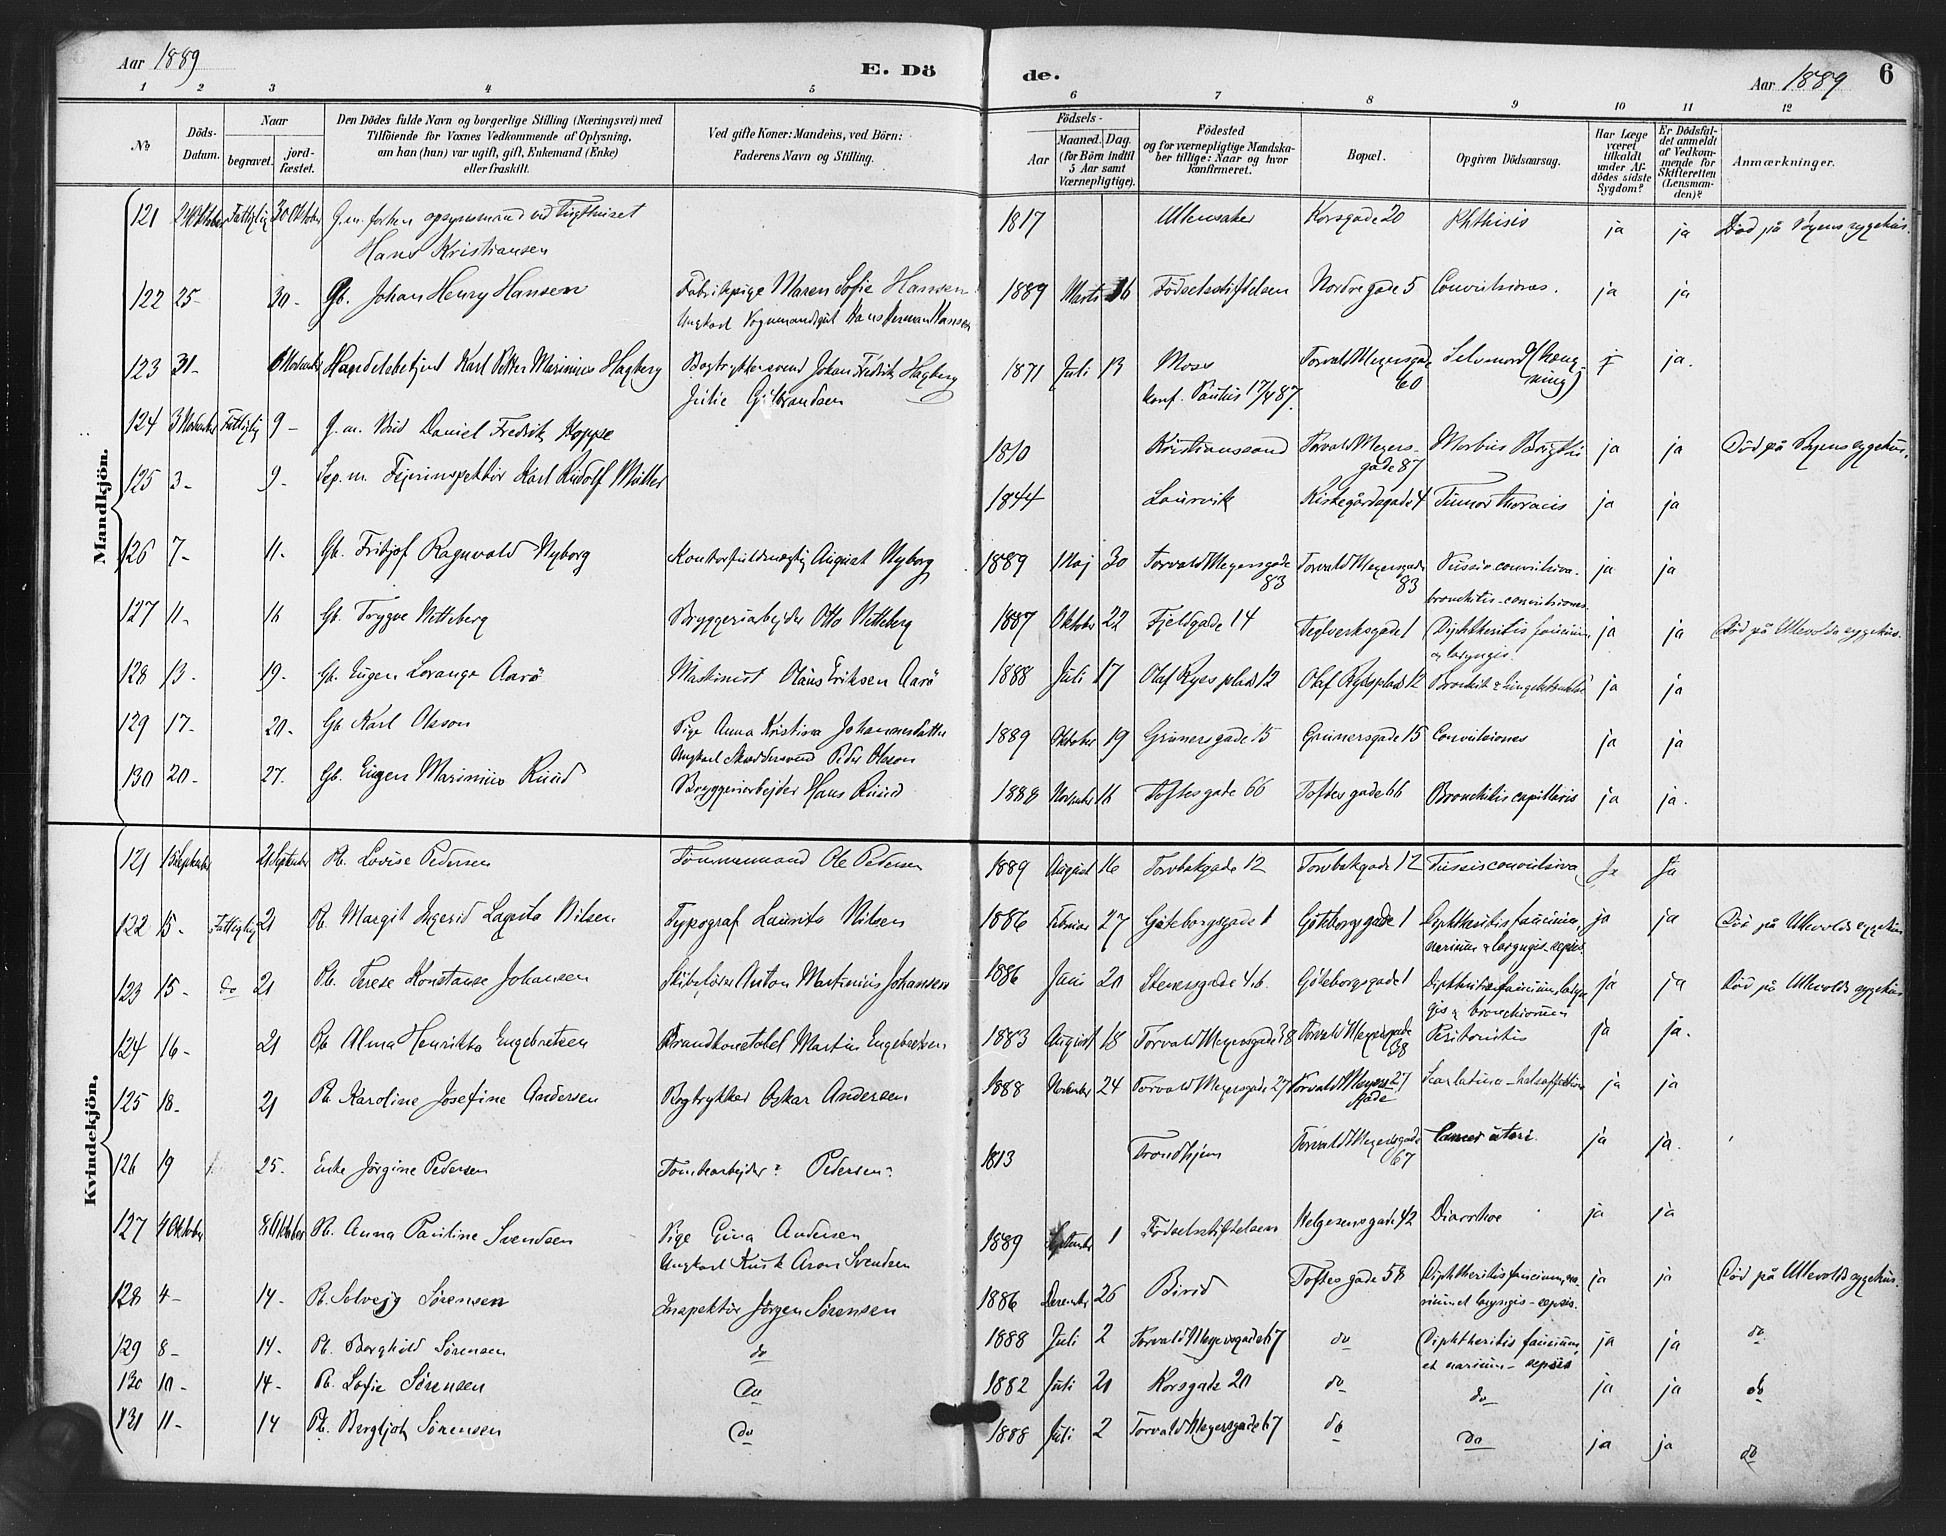 Aar 1889
E. Dö
de.
Aar 1889
6
1 2 3 4 5 6 7 8 9 10 11 12
No
Döds-
Datum.
Naar
begravet.
jord-
fæstet.
Den Dödes fulde Navn og borgerlige Stilling (Næringsvei) med
Tilföiende for Voxnes Vedkommende af Oplysning,
om han (hun) var ugift, gift, Enkemand (Enke)
eller fraskilt.
Ved gifte Koner: Mandens, ved Börn:
Faderens Navn og Stilling.
Födsels-
Aar
Maaned. Dag.
(for Börn indtil
5 Aar samt
Værnepligtige).
Födested
og for værnepligtige Mandska-
ber tillige: Naar og hvor
konfirmeret.
Bopæl.
Opgiven Dödsaarsag.
Har Læge
været
tilkaldt
under Af-
dödes sidste
Sygdom?
Er Dödsfal-
det anmeldt
af Vedkom-
mende for
Skifteretten
(Lensman-
den)?
Anmærkninger.
Mandkjön.
121 Oktober Fattiglig 30 Oktober G. m. forhen opsynsmand ved Tugthuset 1817 Ullensaker Korsgade 20 Phthisis ja ja Död på sygehus.
Hans Kristiansen
122 25- 30- Gb. Johan Henry Hansen Fabrikpige Maren Sofie Hansen 1889 Marts 16 Födselsstiftelsen Nordregade 5 Convulsiones. ja ja
Ungkarl Vognmandsgut Hans Herman Hansen
123 31- 6 November Handelsbetjent Karl Petter Marinius Hagberg Bogtrykkersvend Johan Fredrik Hagberg 1871 Juli 13 Moss Torvald Meyersgade 60 Selvmord (hængning) ja.
Julie Gulbrandsen konf. Paulus 17/4 87.
124 3 November Fattiglig 9- G. m. Bud Daniel Fredrik Koppe 1810 Kristianssand Torvald Meyersgade 87 Morbus Brigthi ja ja Död på sygehus.
125 3- 9- Sep. m. Fejerinspektör Karl Rudolf Müller 1844 Laurvik Kirkegårdsgade 4 Tumor thoracis ja ja
126 7- 11- Gb. Fritjof Ragnvald Nyborg Kontorfuldmægtig August Nyborg 1889 Maj 30 Torvald Meyersgade 83 Torvald Meyersgade 83 Tussis convulsiva- ja ja
bronchitis-convulsiones.
127 11- 16 Gb. Trygve Nitteberg Bryggeriarbejder Otto Nitteberg 1887 Oktober 22 Fjeldgade 14 Teglverksgade 1 Diphtheritis faucium ja ja Död på Ullevolds sygehus.
og laryngis.
128 13- 19- Gb. Eugen Lorange Aarö Maskinist Olaus Eriksen Aarö 1888 Juli 17 Olaf Ryes plads 12 Olaf Ryes plads 12 Bronchit & ja ja
129 17- 20- Gb. Karl Olsson Pige Anna Kristina Johannesdatter 1889 Oktober 19 Grünersgade 15 Grünersgade 15 Convulsiones ja ja
Ungkarl Skræddersvend Peder Olsson
130 20- 27. Gb. Eugen Marinius Ruud Bryggeriarbejder Hans Ruud 1888 November 16 Toftesgade 66 Toftesgade 66 Bronchitis capillaris ja ja.
Kvindekjön.
121 13 September 21 September Pb. Lovise Pedersen Tömmermand Ole Pedersen 1889 August 16 Torvbakgade 12 Torvbakgade 12 Tussis convulsiva Ja Ja
122 15- Fattiglig 21 Pb. Margit Ingerid Nilsen Typograf Laurits Nilsen 1886 Februar 27 Göteborgsgade 1 Göteborgsgade 1 Diphtheritis faucium, ja ja Död på Ullevolds sygehus
narium & laryngis. sepsis.
123 15- do 21 Pb. Terese Konstanse Johansen Skibsförer Anton Martinius Johansen 1886 Juni 20 Stenersgade 4.b. Göteborgsgade 1 Diphtheritis faucium, laryn- ja ja Död på Ullevolds sygehus
gis & bronchiorum
124 16- 21 Pb. Alma Henrikke Engebretsen Brandkonstabel Martin Engebretsen 1883 August 18 Torvald Meyersgade 38 Torvald Meyersgade 38 Peritonitis ja ja.
125 18- 21 Pb. Karoline Josefine Andersen Bogtrykker Oskar Andersen 1888 November 24 Torvald Meyersgade 27 Torvald Meyersgade 27 Scarlatina-halsaffektion ja ja
126 19 25- Enke Jörgine Pedersen Tomtearbejder Pedersen 1813 Trondhjem Torvald Meyersgade 67 Cancer uteri. ja ja.
127 4 Oktober 8 Oktober Pb. Anna Pauline Svendsen Pige Gina Andersen 1889 September 1 Födselsstiftelsen Helgesensgade 42 Diarrhoe ja ja
Ungkarl Kusk Aron Svendsen
128 4- 14- Pb. Solvejg Sörensen Inspektör Jörgen Sörensen 1886 December 26 Birid Toftesgade 58 Diphtheritis faucium, na- ja ja Död på Ullevolds sygehus.
rium et laryngis-sepsis.
129 8- 14- Pb. Borghild Sörensen do 1888 Juli 2 Torvald Meyersgade 67 do Diphtheritis faucium, ja ja do
et narium-sepsis
130 10- 14- Pb. Sofie Sörensen do 1882 Juli 21 Korsgade 20 do do ja ja do
131 11- 14 Pb. Bergljot Sörensen do 1888 Juli 2 Torvald Meyersgade 67 do do ja ja do